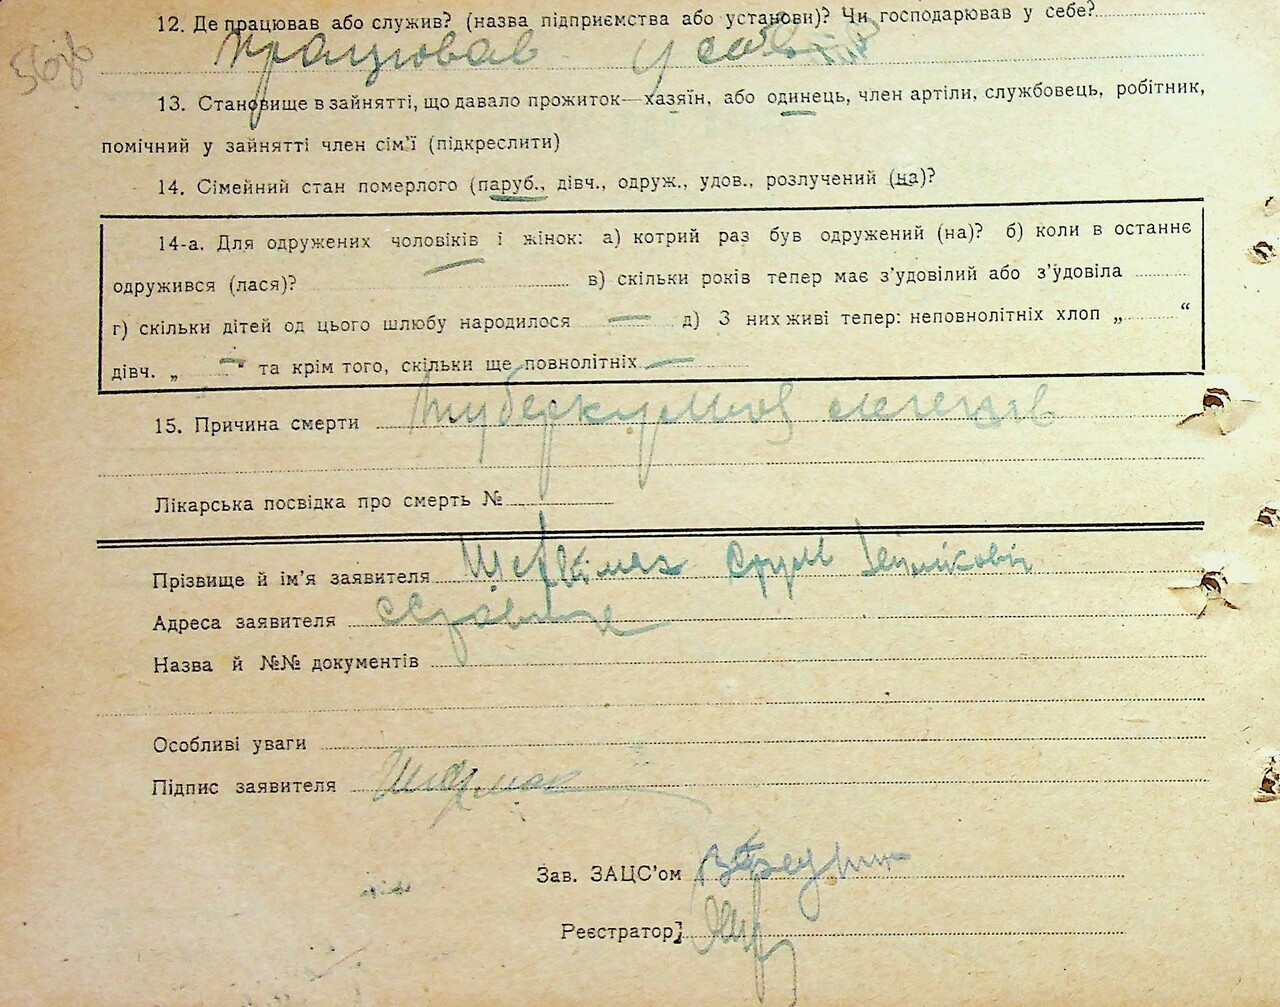 12. Де працював або служив? (назва підприємства або установи)? Чи господарював у себе?
працював у себе
13. Становище в зайнятті, що давало прожиток—хазяїн, або одинець, член артіли, службовець, робітник,
помічний у зайнятті член сім’ї (підкреслити)
14. Сімейний стан померлого (паруб., дівч., одруж., удов., розлучений (на)?
14-а. Для одружених чоловіків і жінок: а) котрий раз був одружений (на)? б) коли в останнє
одружився (лася)? в) скільки років тепер має з’удовілий або з’удовіла
г) скільки дітей од цього шлюбу народилося — д) З них живі тепер: неповнолітніх хлоп „ “
дівч. „ — “ та крім того, скільки ще повнолітніх —
15. Причина смерти туберкульоз легенів
Лікарська посвідка про смерть №
Прізвище й ім’я заявителя Сруль
Адреса заявителя
Назва й №№ документів
Особливі уваги
Підпис заявителя
Зав. ЗАЦС’ом
Реєстратор